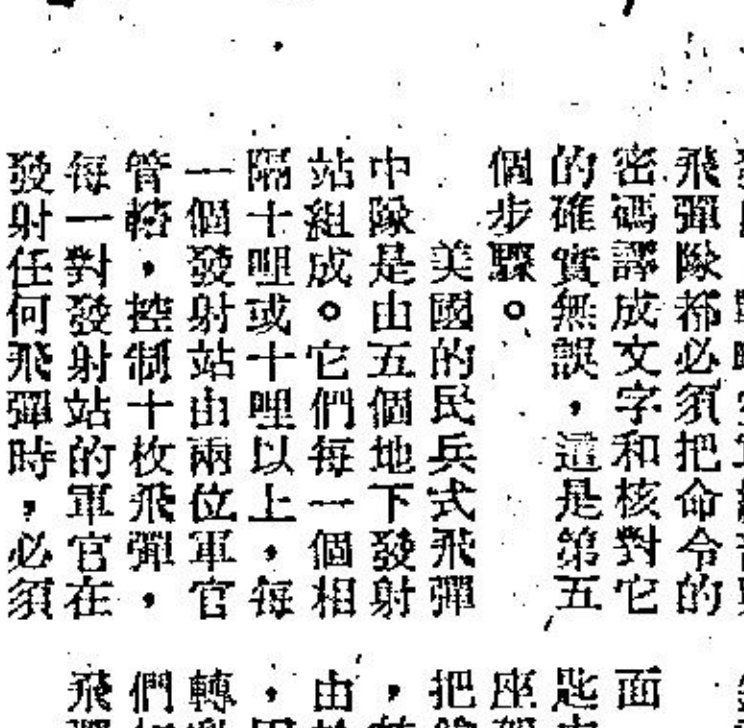 飛彈隊都必須把命令的
密碼譯成文字和核對它
的確實無誤，這是第五
個步驟。
美國的民兵式飛彈
中隊是由五個地下發射
站組成。它們每一個相
隔十哩或十哩以上，每
一個發射站由兩位軍官
管轄，控制十枚飛彈，
每一對發射站的軍官在
發射任何飛彈時，必須
面
匙
座
把
，
由
，
轉
們
飛